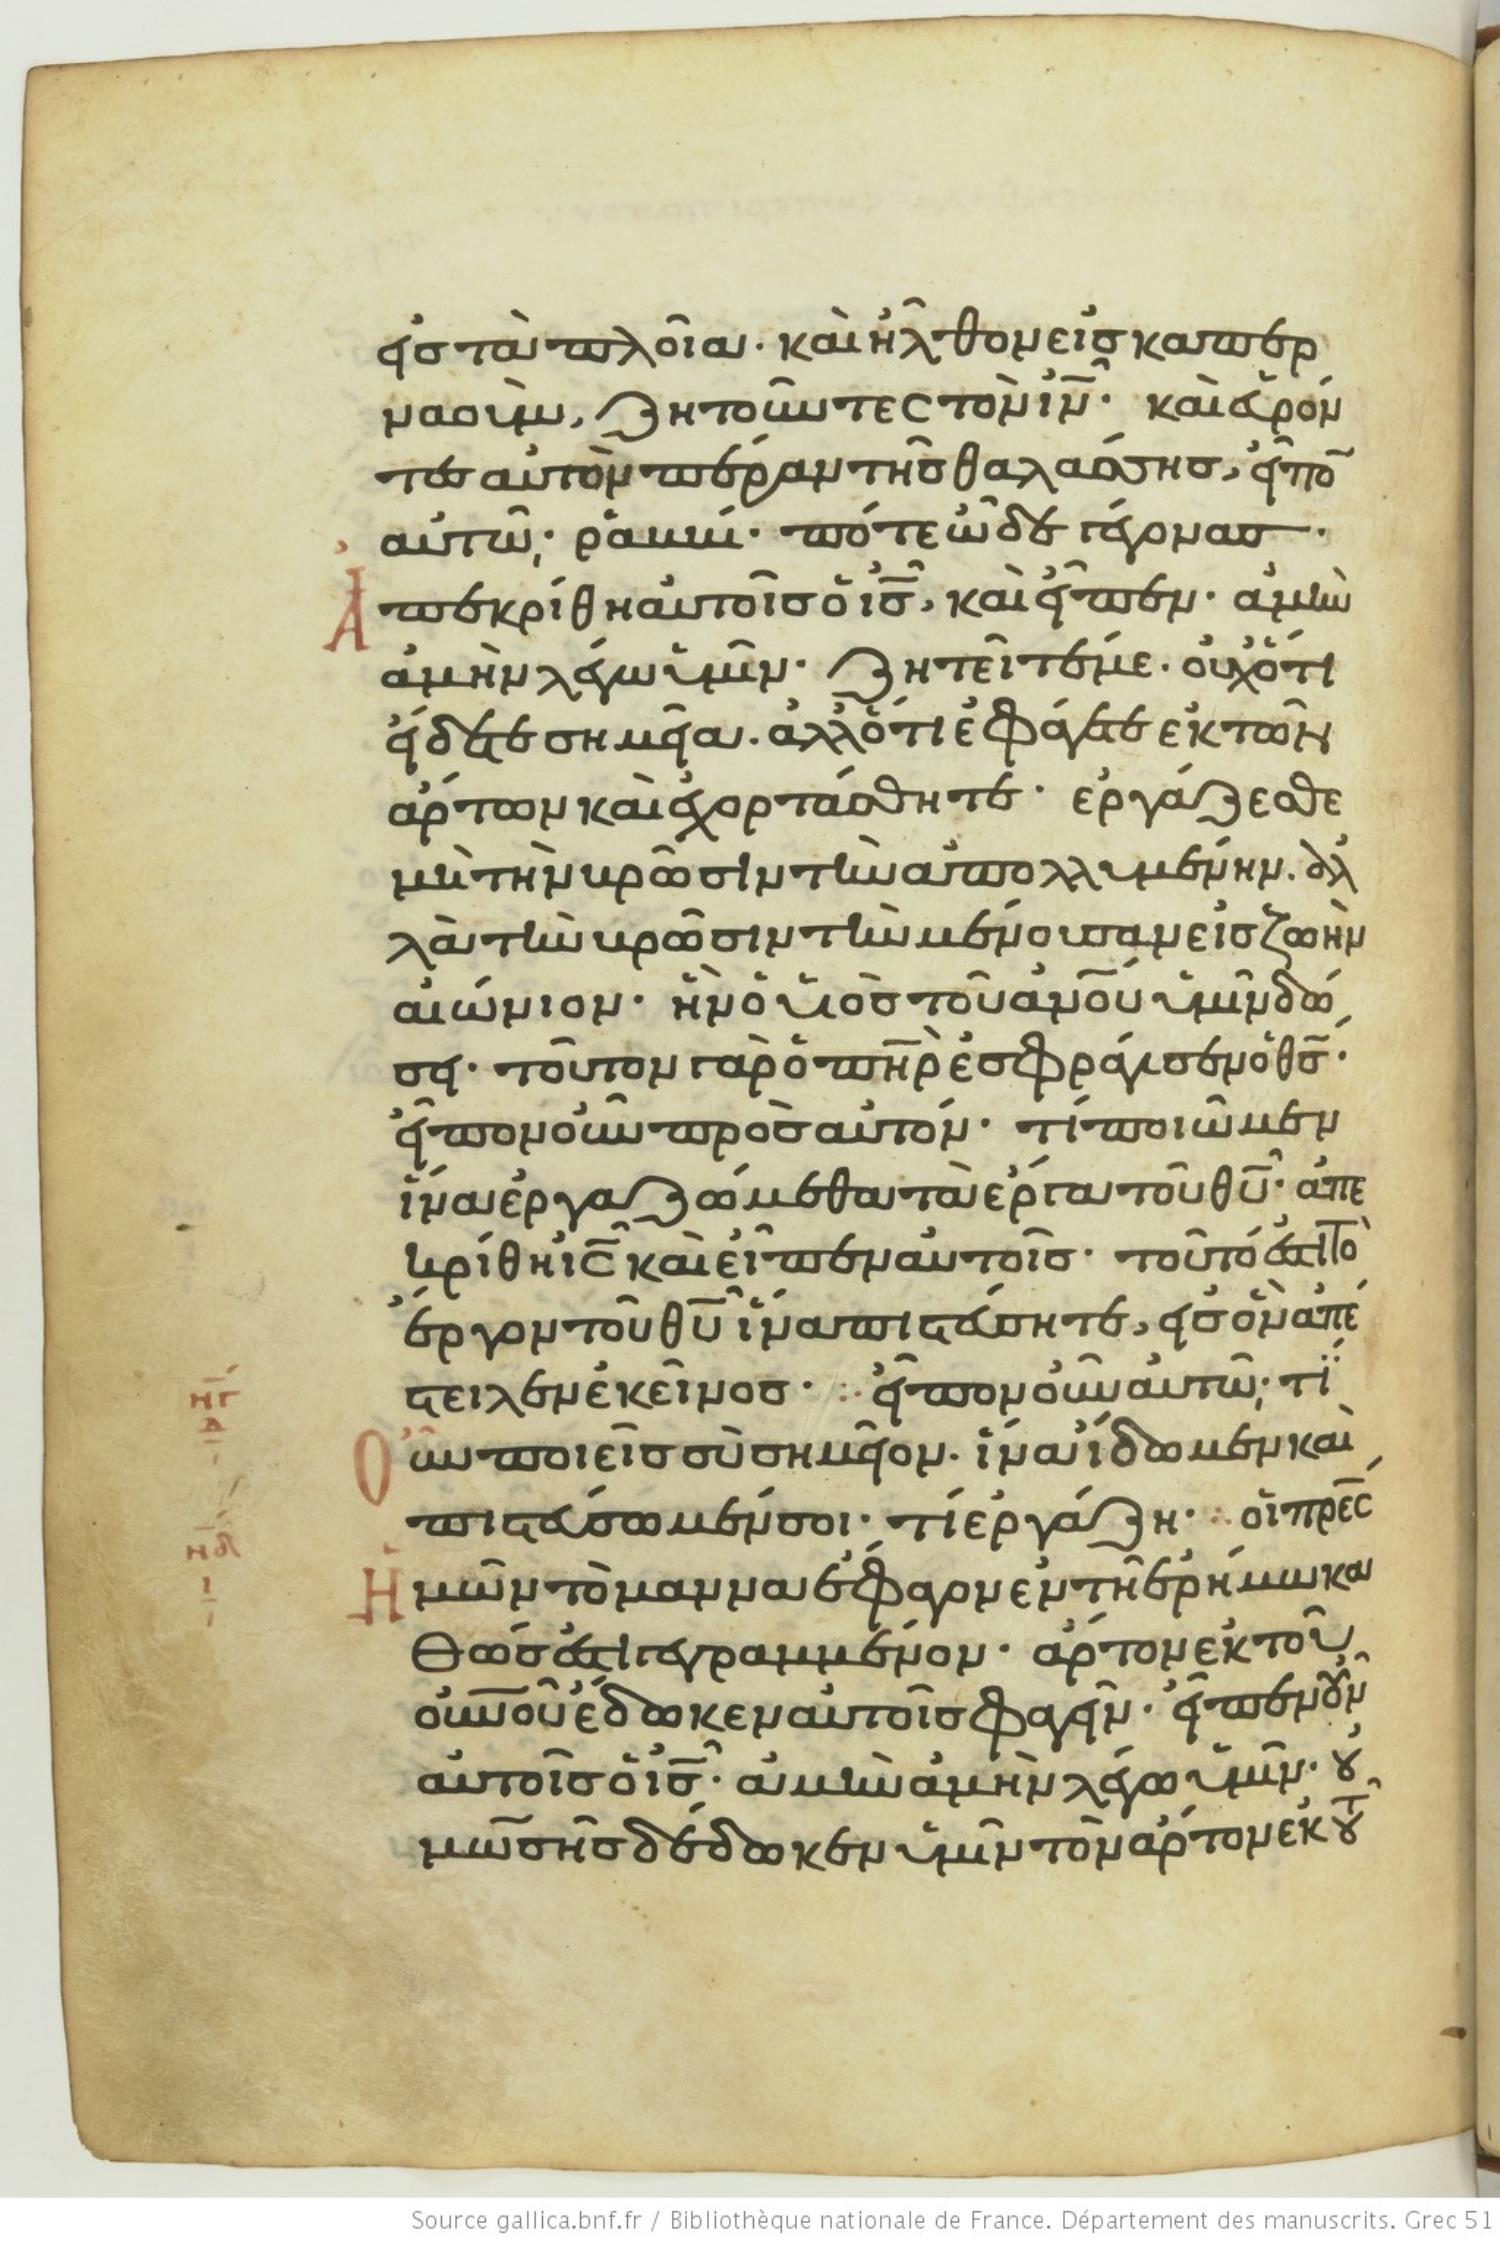 εἰς τὰ πλοῖα· καὶ ἦλθον εἰς καπερ
ναοὺμ, ζητοῦντες τὸν ἰν̅· καὶ εὑρόν
τες αὐτὸν πέραν τῆς θαλάσσης, εἶπο̅
αὐτῶ· ῥαββί· πότε ὧδε γέγονας·
Ἀπεκρίθη αὐτοῖς ὁ ις̅, καὶ εἶπεν· ἀμὴν
ἀμὴν λέγω ὑμῖν· ζητεῖτέ με· οὐχ ὅτι
εἴδετε σημεῖα· ἀλλ' ὅτι ἐφάγετε ἐκ τῶν
ἄρτων καὶ ἐχορτάσθητε· ἐργάζεσθε
μὴ τὴν βρῶσιν τὴν ἀπολλυμένην· ἀλ
λὰ τὴν βρῶσιν τὴν μένουσαν εἰς ζωὴν
αἰώνιον· ἣν ὁ υἱὸς τοῦ ἀνο̅υ ὑμῖν δώ
σει· τοῦτον γὰρ ὁ πη̅ρ ἐσφράγισεν ὁ θς̅·
εἶπον οὖν πρὸς αὐτόν· τί ποιῶμεν
ἵνα ἐργαζώμεθα τὰ ἔργα τοῦ θυ̅· ἀπε
κρίθη ις̅ καὶ εἶπεν αὐτοῖς· τοῦτό ἐστι τὸ
ἔργον τοῦ θυ̅ ἵνα πιστεύσητε, εἰς ὃν ἀπέ
στειλεν ἐκεῖνος· ⁘ εἶπον οὖν αὐτῶ· τί
Οὖν ποιεῖς σὺ σημεῖον· ἵνα ἴδωμεν καὶ
πιστεύσωμέν σοι· τί ἐργάζη· ⁘ οἱ πρε̅ς
Ἡμῶν τὸ μάννα ἔφαγον ἐν τῆ ἐρήμω κα
θώς ἐστι γεγραμμένον· ἄρτον ἐκ τοῦ
οὐνο̅ῦ ἔδωκεν αὐτοῖς φαγεῖν· εἶπεν οὖν
αὐτοῖς ὁ ις̅· ἀμὴν ἀμὴν λέγω ὑμῖν· οὐ
μωσῆς δέδωκεν ὑμῖν τὸν ἄρτον ἐκ τοῦ
Source gallica.bnf.fr / Bibliothèque nationale de France. Département des manuscrits. Grec 51